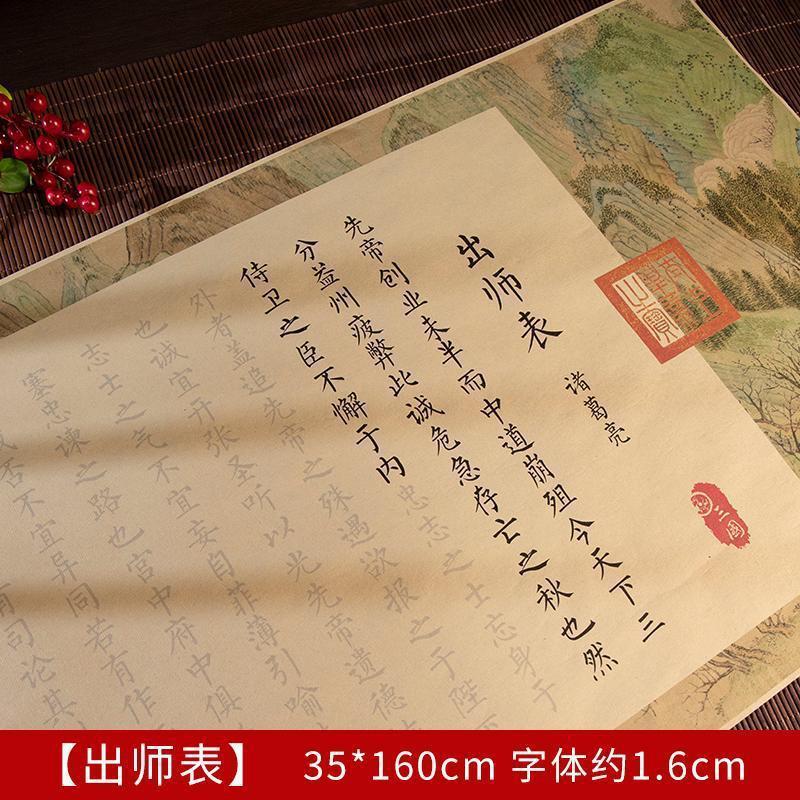 出师表
诸葛亮
先帝创业未半而中道崩殂今天下三
分益州疲弊此诚危急存亡之秋也然
侍卫之臣不懈于内忠志之士忘身于
外者盖追先帝之殊遇欲报之于陛
也诚宜开张圣听以光先帝遗德
志士之气不宜妄自菲薄引喻
塞忠谏之路也宫中府中俱
否不宜异同若有作
有司论其
之寶
三國
【出师表】 35*160cm 字体约1.6cm